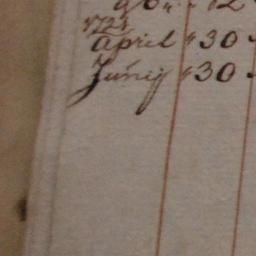 1723
April " 30
Junij " 30